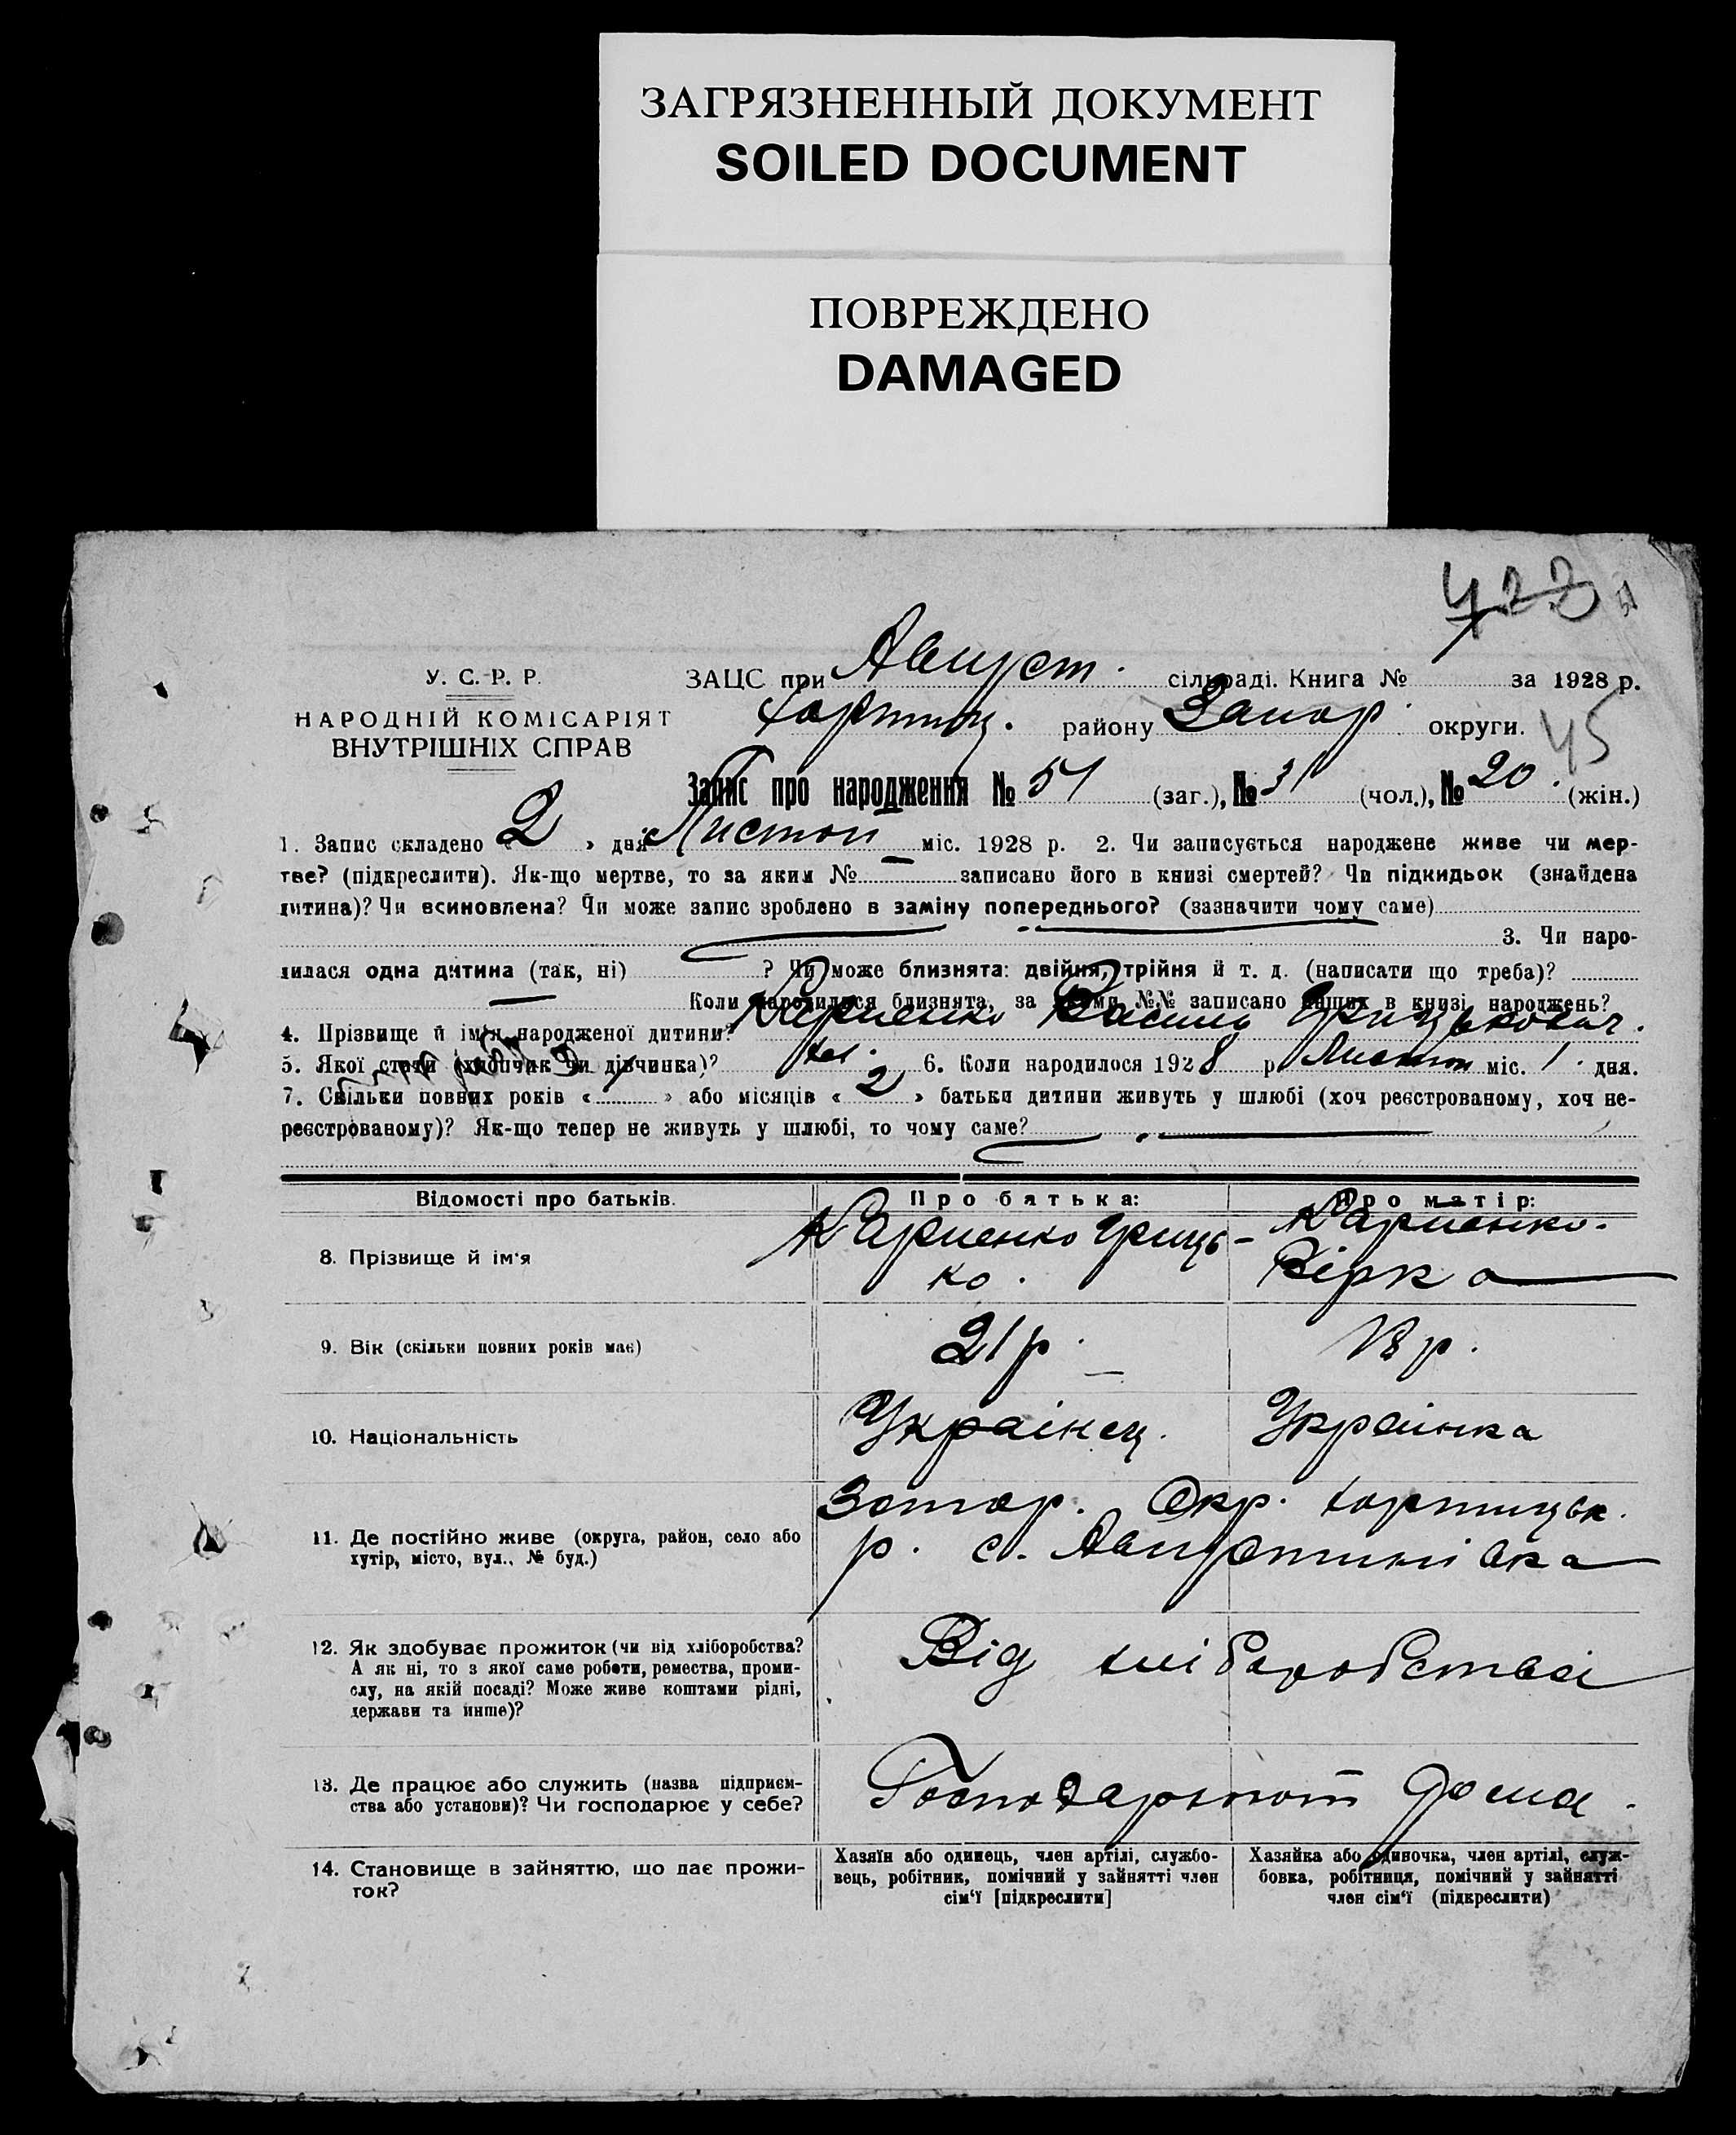 ЗАГРЯЗНЕННЫЙ ДОКУМЕНТ
SOILED DOCUMENT
ПОВРЕЖДЕНО
DAMAGED
У. С. Р. Р.
НАРОДНІЙ КОМІСАРІЯТ
ВНУТРІШНІХ СПРАВ
ЗАЦС при Август. сільраді. Книга № за 1928 р.
Хортиц. району Запор. округи.
45
Запис про народження № 51 (заг.), № 31 (чол.), № 20. (жін.)
1. Запис складено « 2 » дня Листоп міс. 1928 р. 2. Чи записується народжене живе чи мер-
тве? (підкреслити). Як-що мертве, то за яким № — записано його в книзі смертей? Чи підкидьок (знайдена
дитина)? Чи всиновлена? Чи може запис зроблено в заміну попереднього? (зазначити чому саме)
3. Чи наро-
дилася одна дитина (так, ні) ? Чи може близнята: двійня, трійня й т. д. (написати що треба)?
Коли народилися близнята, за якими №№ записано инших в книзі народжень?
4. Прізвище й ім'я народженої дитини? Карпенко Василь Грицькович.
5. Якої стати (хлопчик чи дівчинка)? хл. 6. Коли народилося 1928 р Листоп міс. 1. дня.
7. Скільки повних років « » або місяців « 2 » батьки дитини живуть у шлюбі (хоч реєстрованому, хоч не-
реєстрованому)? Як-що тепер не живуть у шлюбі, то чому саме?
Відомості про батьків. Про батька: Про матір:
8. Прізвище й ім'я Карпенко Грицько. Карпенко. Вірка
9. Вік (скільки повних років має) 21 р. 18 р.
10. Національність Українец. Українка
11. Де постійно живе (округа, район, село або Запор. Окр. Хортицьк.
хутір, місто, вул., № буд.) р. с. Августинівка
12. Як здобуває прожиток (чи від хліборобства? Від хліборобства
А як ні, то з якої саме роботи, ремества, проми-
слу, на якій посаді? Може живе коштами рідні,
держави та инше)?
13. Де працює або служить (назва підприєм-
ства або установи)? Чи господарює у себе? дома.
14. Становище в зайняттю, що дає прожи-
ток?
Хазяїн або одинець, член артілі, службо-
вець, робітник, помічний у зайнятті член
сім'ї [підкреслити]
Хазяйка або одиночка, член артілі, служ-
бовка, робітниця, помічний у зайнятті
член сім'ї (підкреслити)